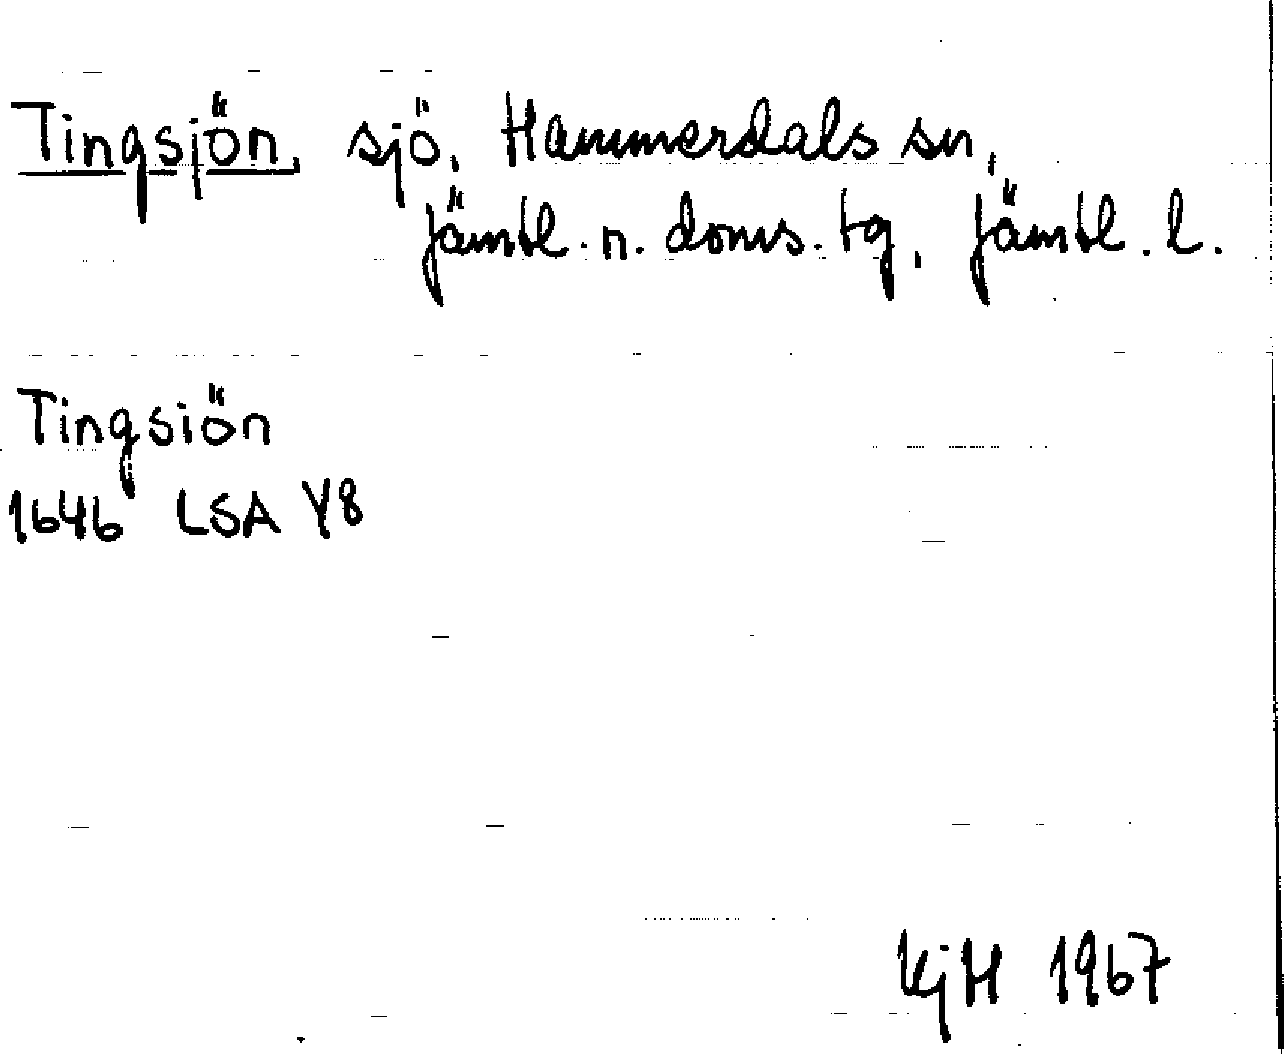 Tingsjön, sjö, Hammerdals sn,
Jämtl. n. doms. tg, Jämtl. l.
Tingsiön
1646 LSA Y8
KjH 1967